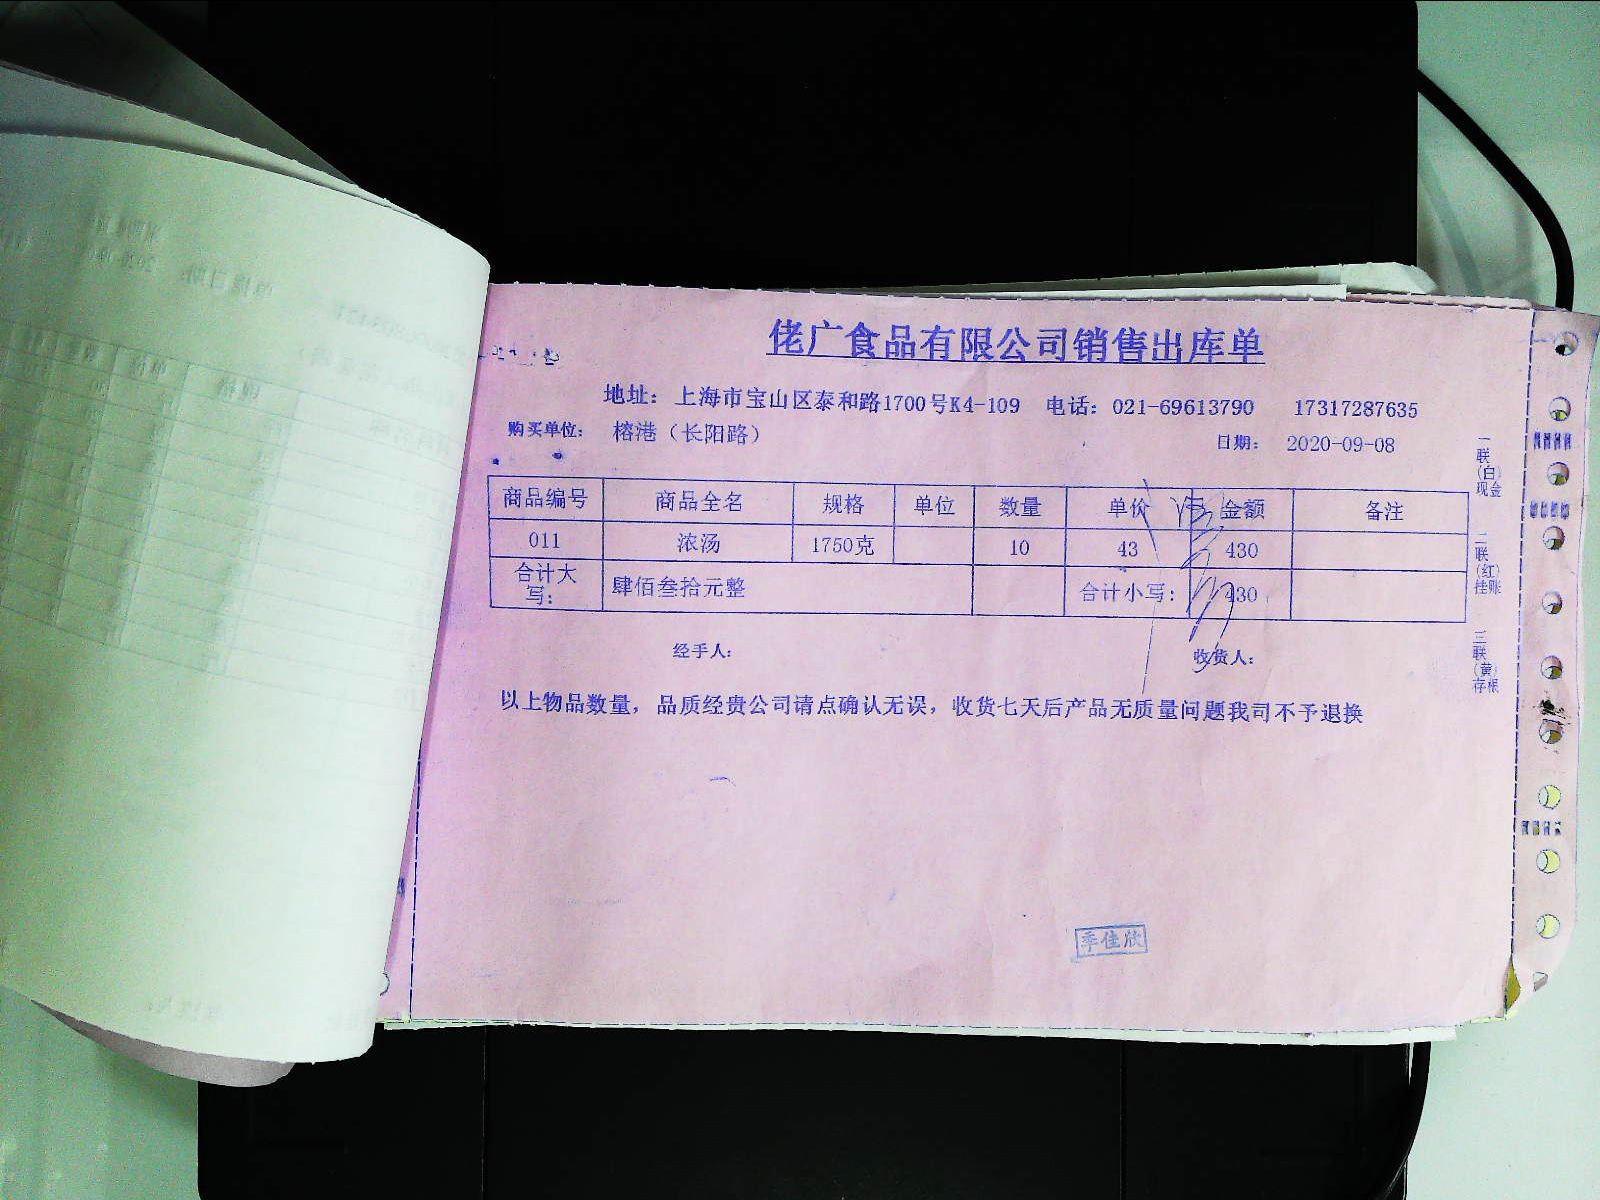 佬广食品有限公司销售出库单
地址：上海市宝山区泰和路1700号K4-109 电话：021-69613790 17317287635
购买单位： 榕港（长阳路） 日期： 2020-09-08
商品编号 商品全名 规格 单位 数量 单价 金额 备注
011 浓汤 1750克 10 43 430
合计大写： 肆佰叁拾元整 合计小写： 430
经手人： 收货人：
以上物品数量，品质经贵公司请点确认无误，收货七天后产品无质量问题我司不予退换
一联（白）现金
二联（红）挂账
三联（黄）存根
季佳欣